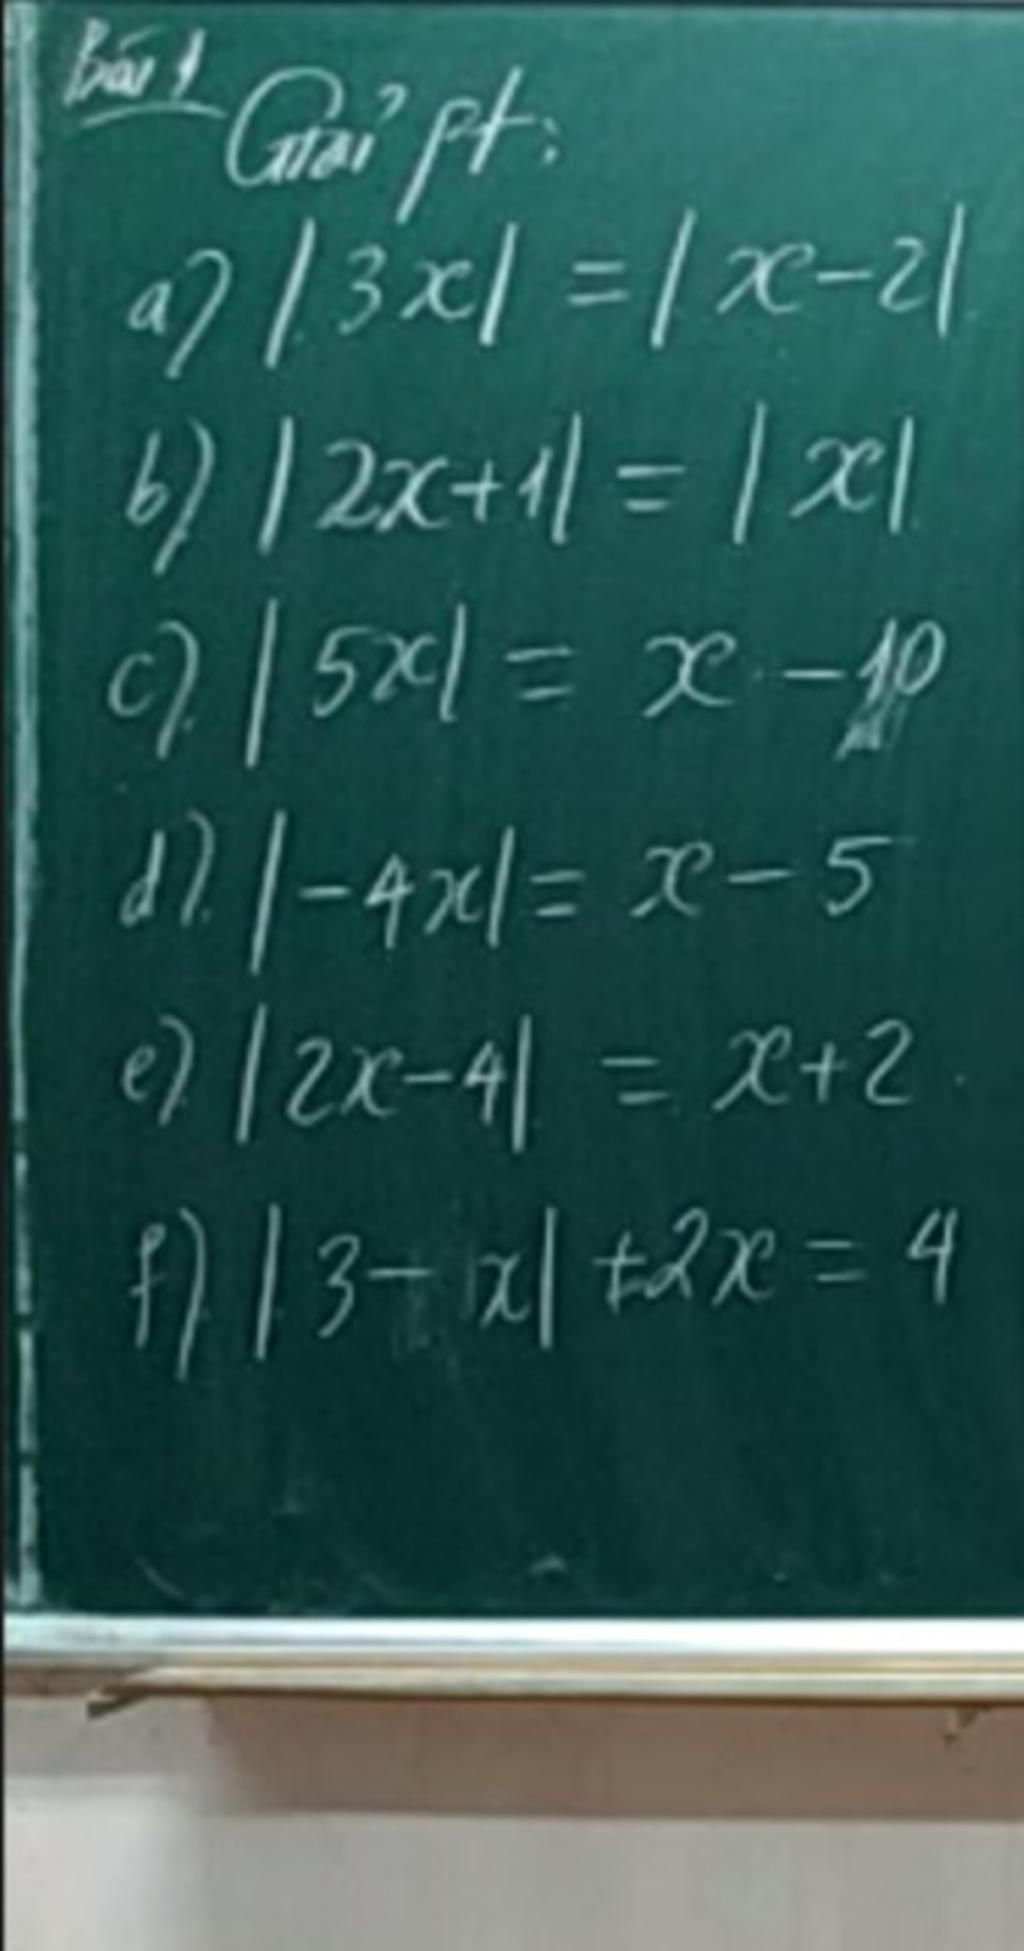 Bài 1
Giải pt:
a) |3x| = |x-2|
b) |2x+1| = |x|
c) |5x| = x - 10
d) |-4x| = x - 5
e) |2x-4| = x+2
f) |3-x| +2x = 4